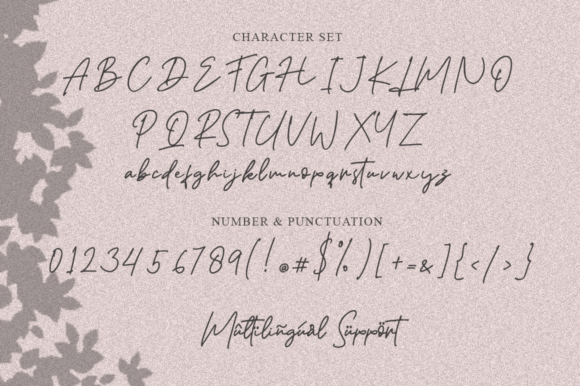 CHARACTER SET
A B C D E F G H I J K L M N O
P Q R S T U V W X Y Z
a b c d e f g h i j k l m n o p q r s t u v w x y z
NUMBER & PUNCTUATION
0 1 2 3 4 5 6 7 8 9 ( ! @ # $ % ) [ + = & ] { < / > }
Mûltilingúál Süppört